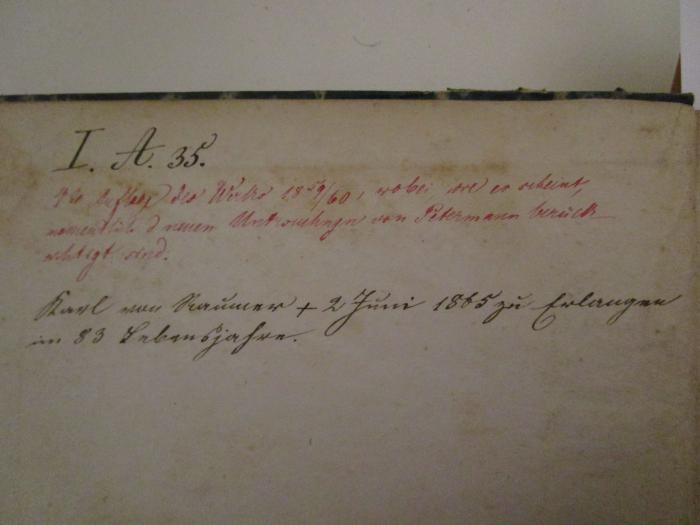 I. A. 35.
Auflage des Werks 1859/60, wobei wie es scheint,
namentlich d neuen Untersuchungen von Petermann berück
sichtigt sind.
Karl von Raumer + 2 Juni 1865 zu Erlangen
im 83 Lebensjahre.